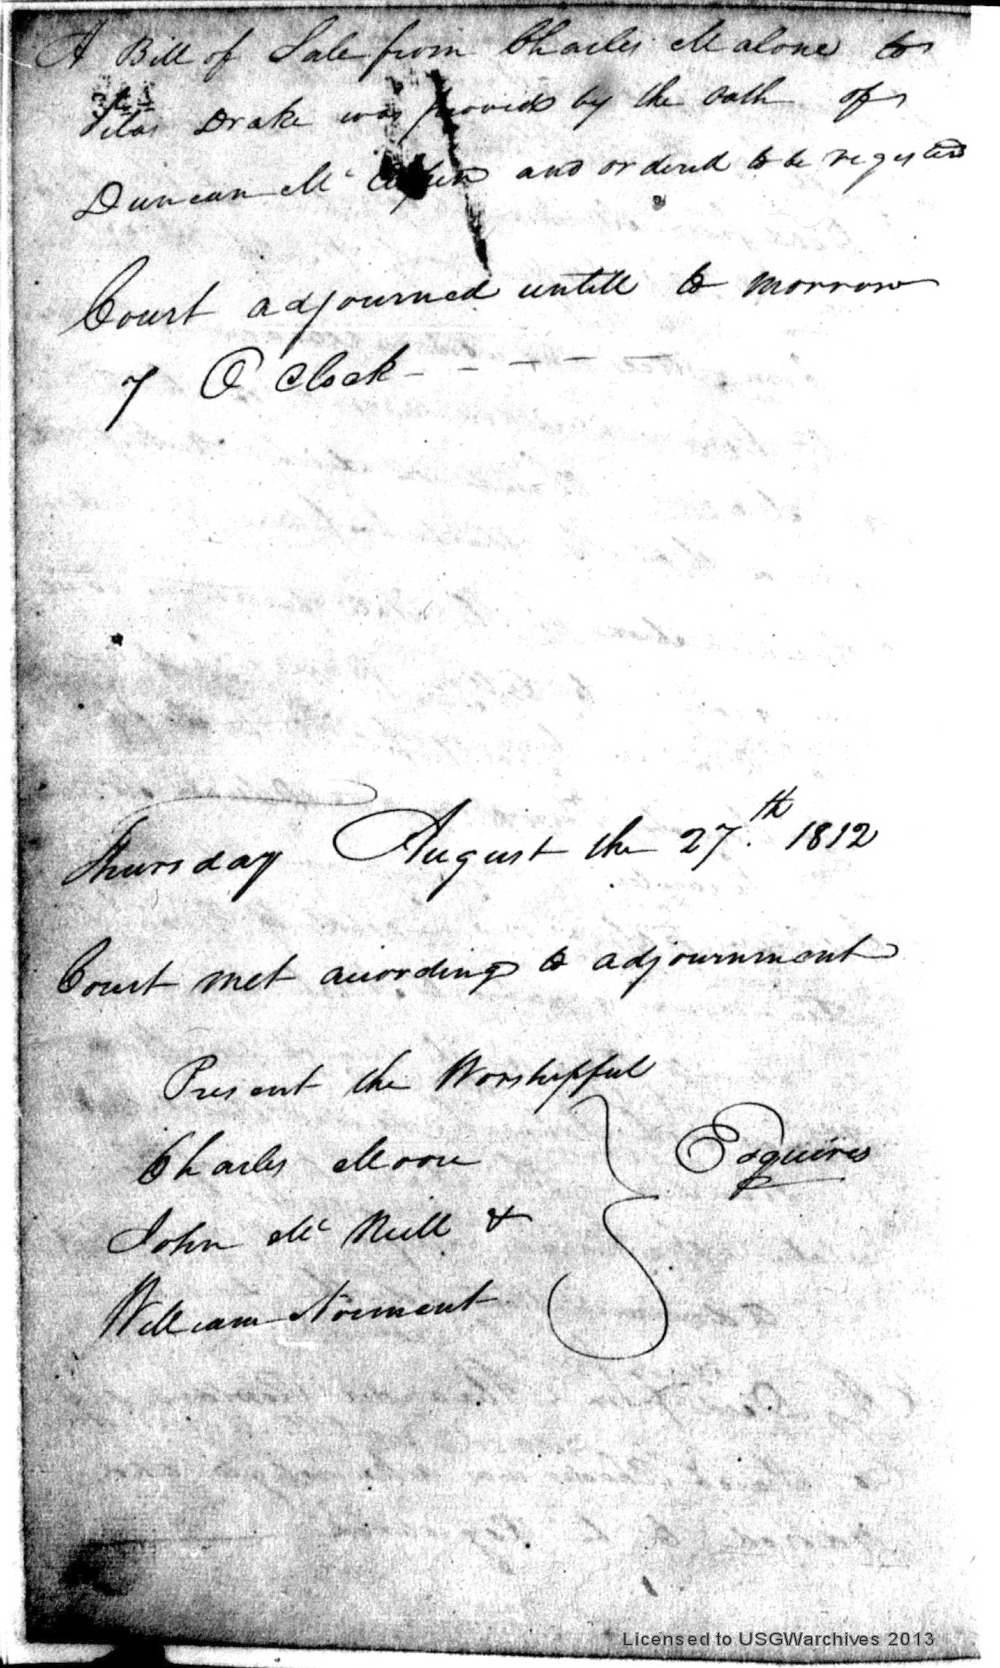 A Bill of Sale from Charles Malone to
Silas Drake was proved by the Oath of
Duncan Mc and ordered to be registerd
Court adjourned untill to morrow
7 O Clock - - - - -
Thursday August the 27th 1812
Court met acording to adjournment
Present the Worshipful
Charles Moore
John Mc Neill &
William Norment
Esquires
Licensed to USGWarchives 2013